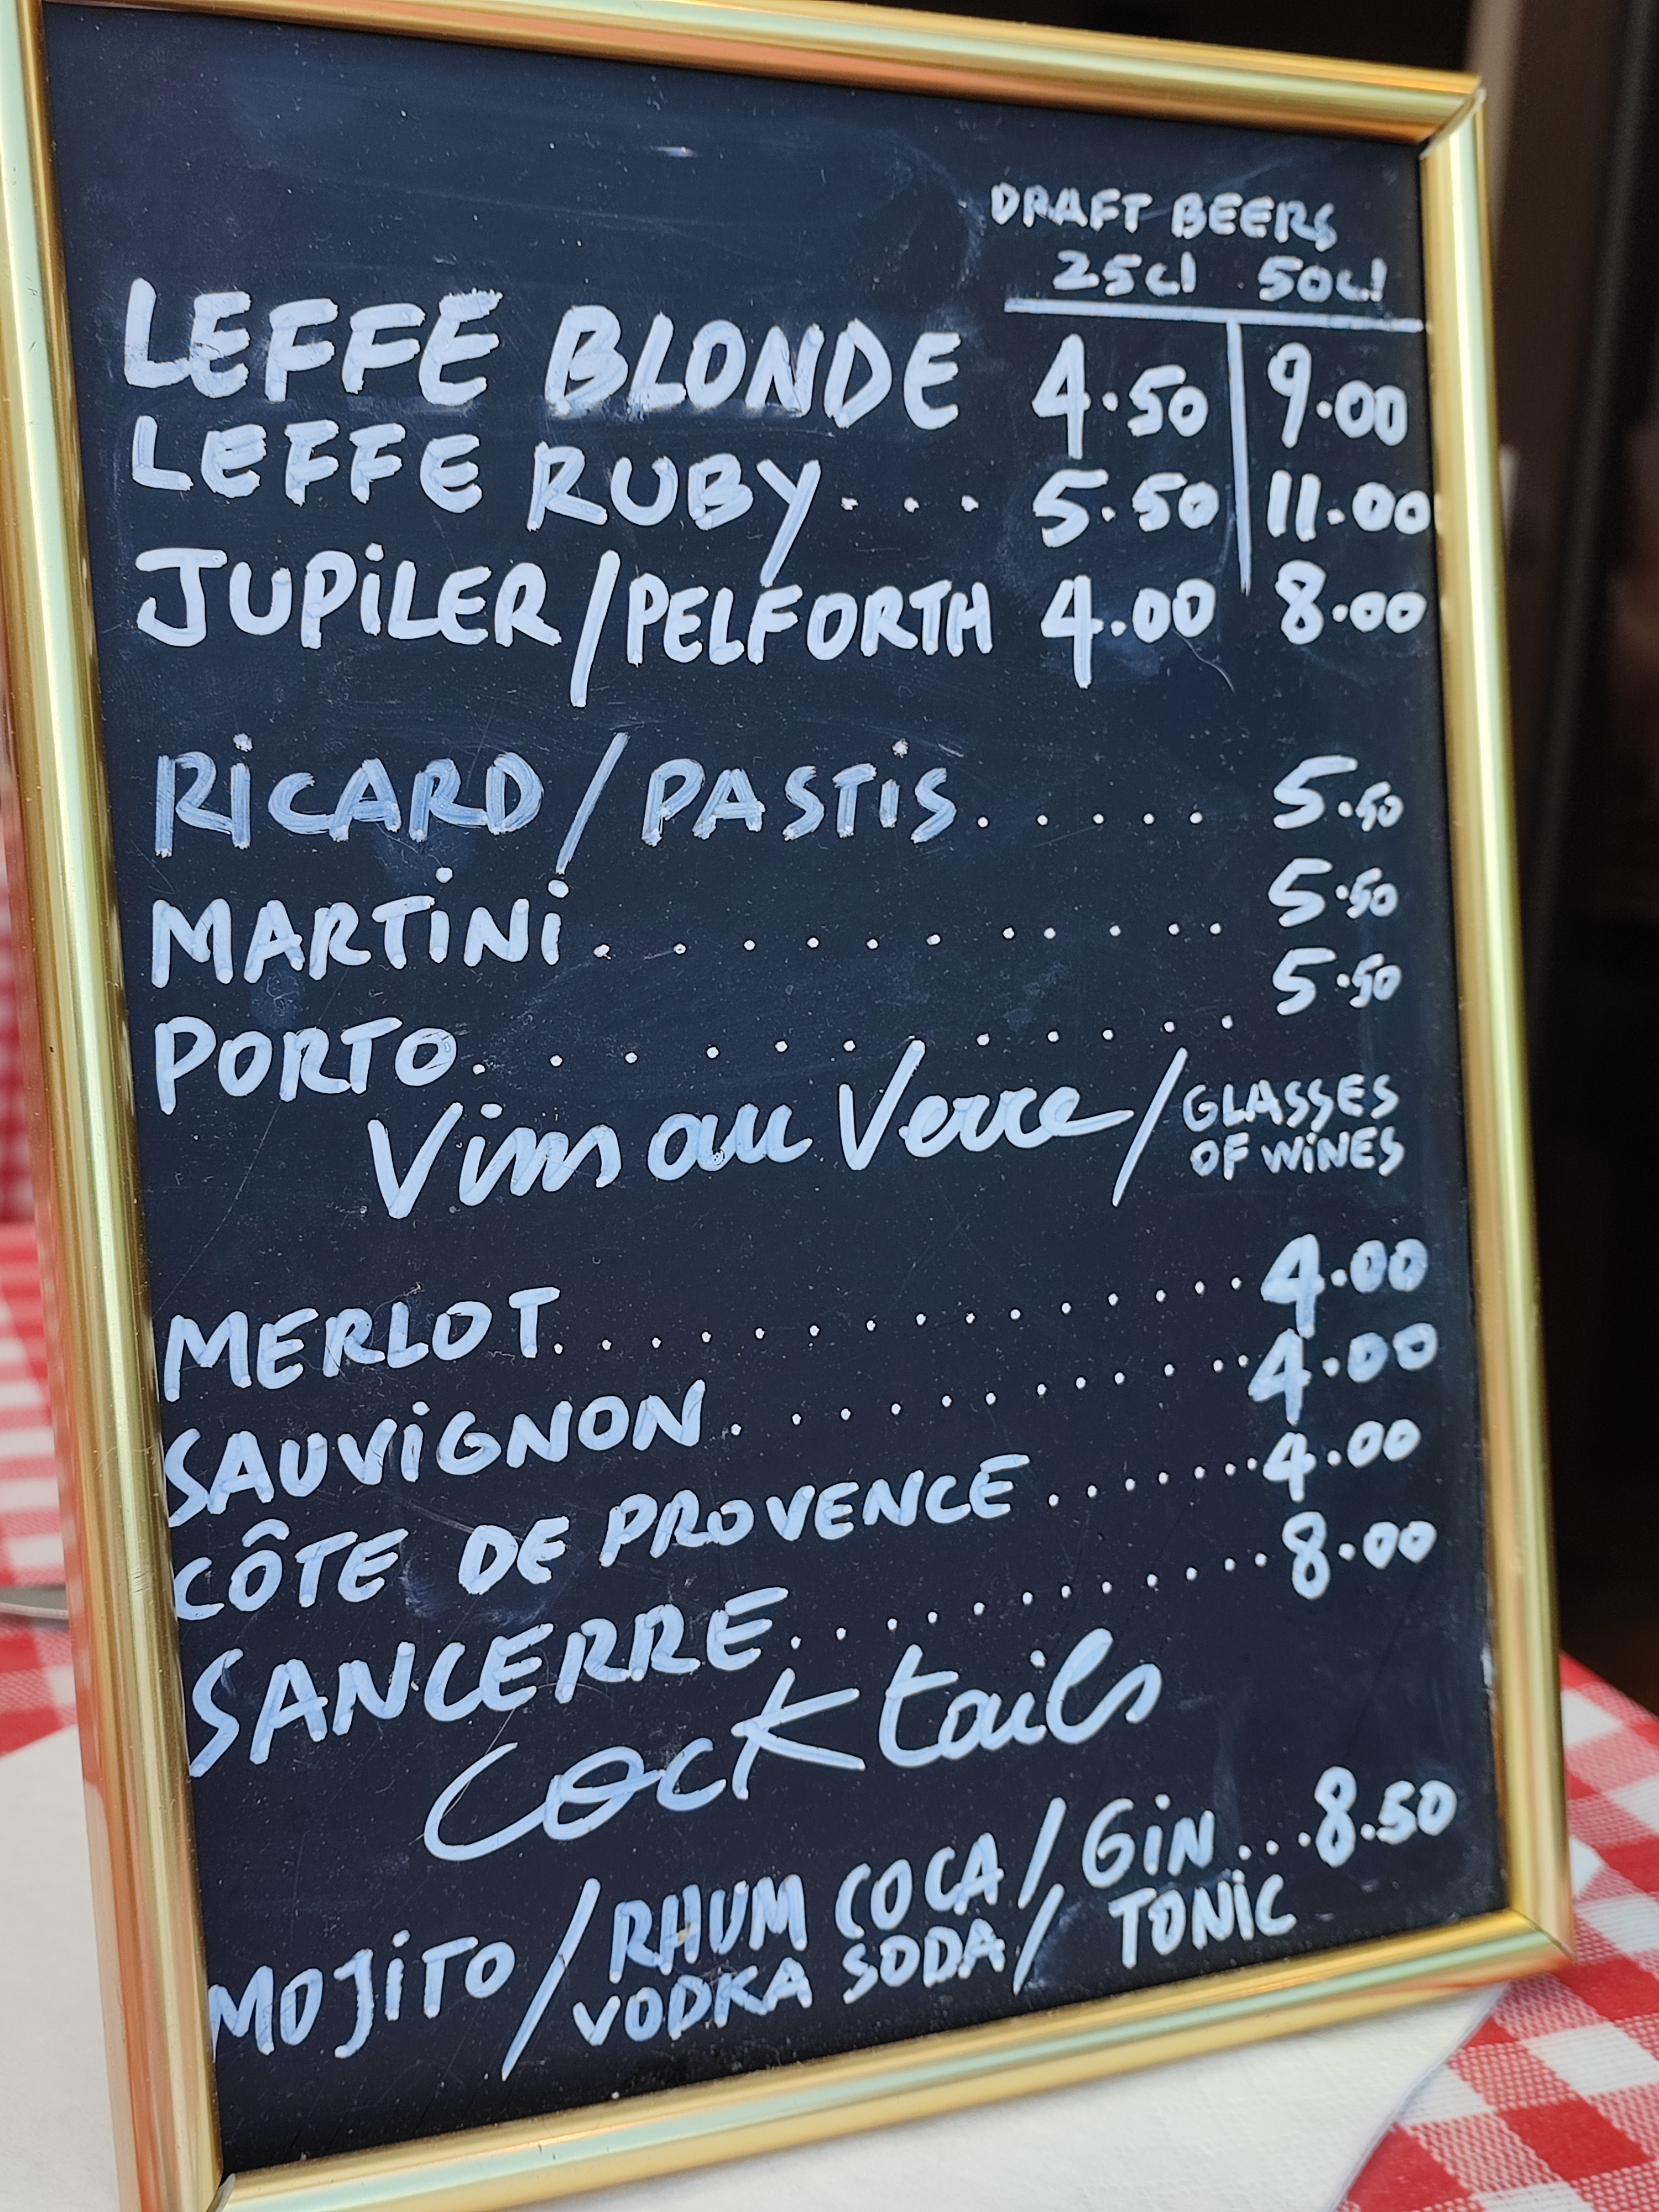 DRAFT BEERS
25cl 50cl
LEFFE BLONDE 4.50 9.00
LEFFE RUBY.... 5.50 11.00
JUPiLER/PELFORTH 4.00 8.00
RiCARD/PASTiS...... 5.50
MARTiNi........... 5.50
PORTO............ 5.50
Vins au Verre/GLASSES
OF WiNES
MERLOT............. 4.00
SAUViGNON........... 4.00
CÔTE DE PROVENCE......4.00
SANCERRE............8.00
Cocktails
MOJiTO/RHUM COCA/GiN...8.50
VODKA SODA/TONiC